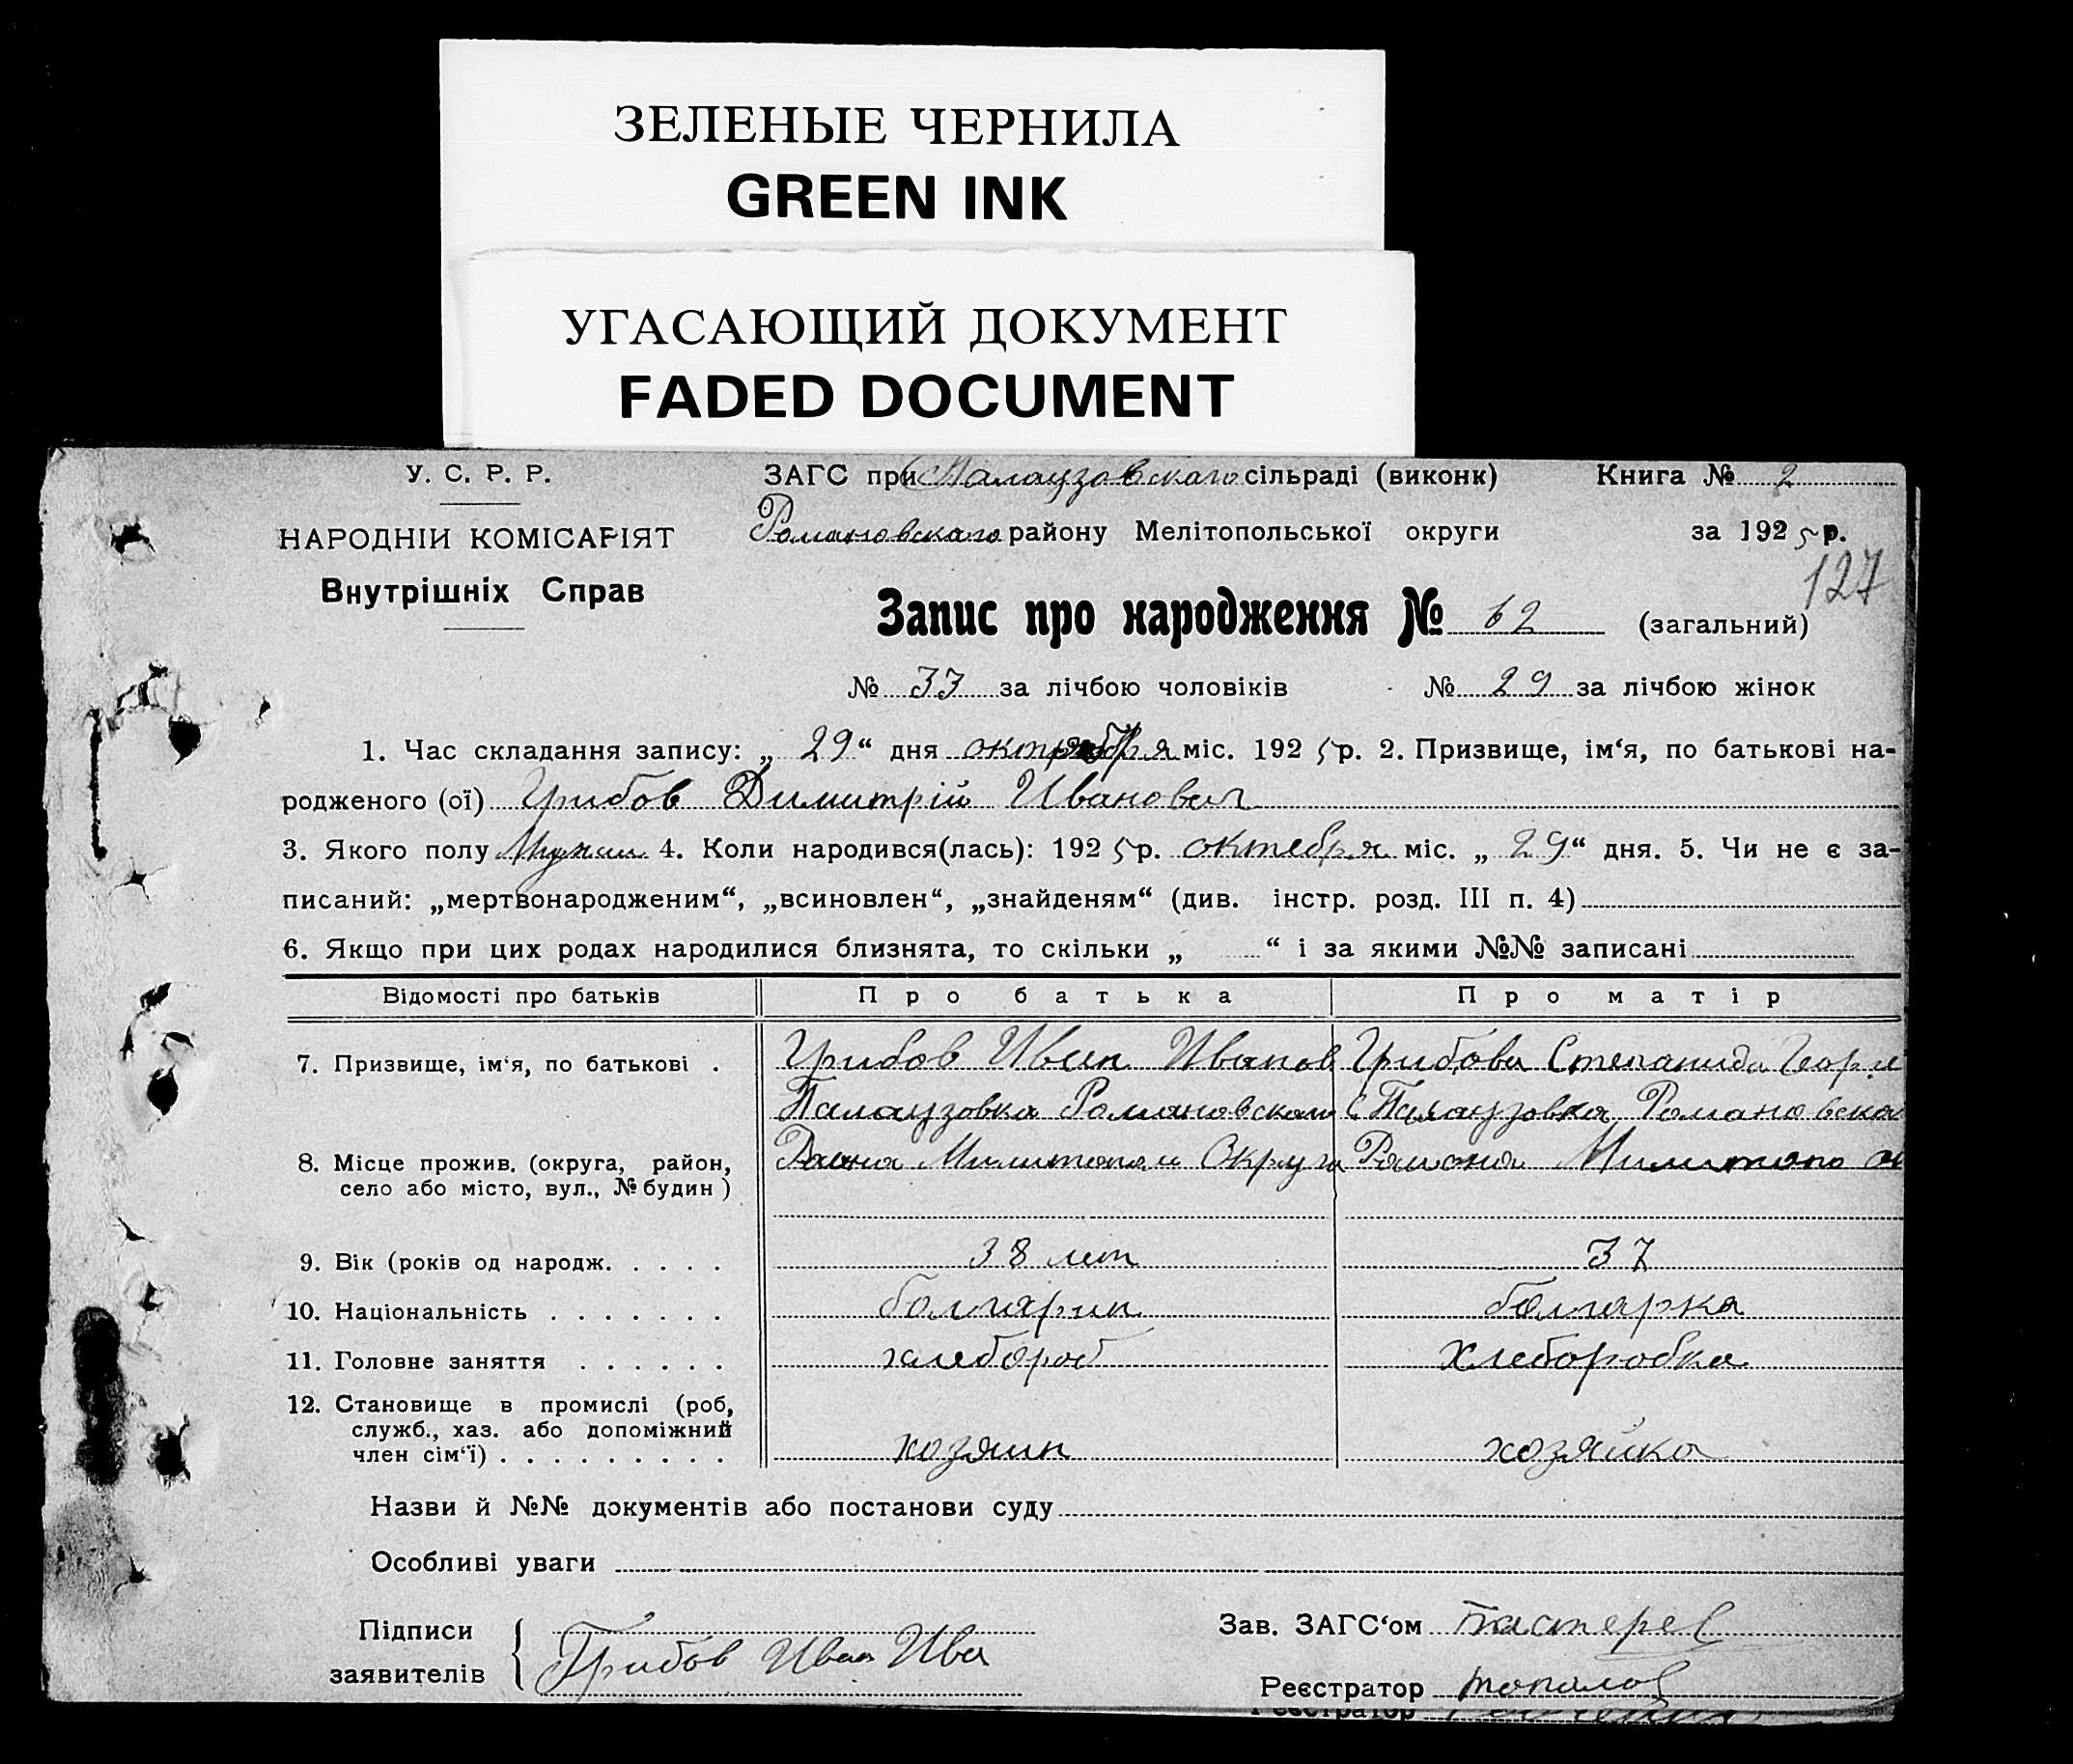 ЗЕЛЕНЫЕ ЧЕРНИЛА
GREEN INK
УГАСАЮЩИЙ ДОКУМЕНТ
FADED DOCUMENT
У. С. Р. Р.
НАРОДНІЙ КОМІСАРІЯТ
Внутрішніх Справ
ЗАГС при Палаузовскаго сільраді (виконк) Книга № 2
Романовскаго району Мелітопольської округи за 1925 р.
127
Запис про народження № 62 (загальний)
№ 33 за лічбою чоловіків № 29 за лічбою жінок
1. Час складання запису: „ 29 “ дня октебря міс. 1925 р. 2. Призвище, ім‘я, по батькові на-
родженого (ої) Грибов Димитрій Иванович
3. Якого полу Мужеск 4. Коли народився(лась): 1925 р. октебря міс. „ 29 “ дня. 5. Чи не є за-
писаний: „мертвонародженим“, „всиновлен“, „знайденям“ (див. інстр. розд. III п. 4)
6. Якщо при цих родах народилися близнята, то скільки „ “ і за якими №№ записані
Відомості про батьків Про батька Про матір
7. Призвище, ім‘я, по батькові . Грибов Иван Иванов Грибова Степанида Георге
Палаузовка Романовскаго С Палаузовка Романовска
8. Місце прожив. (округа, район, село або місто, вул., № будин) Раона Милитопол Округа Раиона Милитопо
9. Вік (років од народж. . . . . 38 лет 37
10. Національність . . . . . . . болгарин болгарка
11. Головне заняття . . . . . . хлебороб хлеборобка
12. Становище в промислі (роб, служб., хаз. або допоміжний член сім‘ї) . . . . . . . . . хозяин хозяйка
Назви й №№ документів або постанови суду
Особливі уваги
Підписи заявителів Грибов Иван Ива
Зав. ЗАГС‘ом
Реєстратор Топалов
Реєстратор